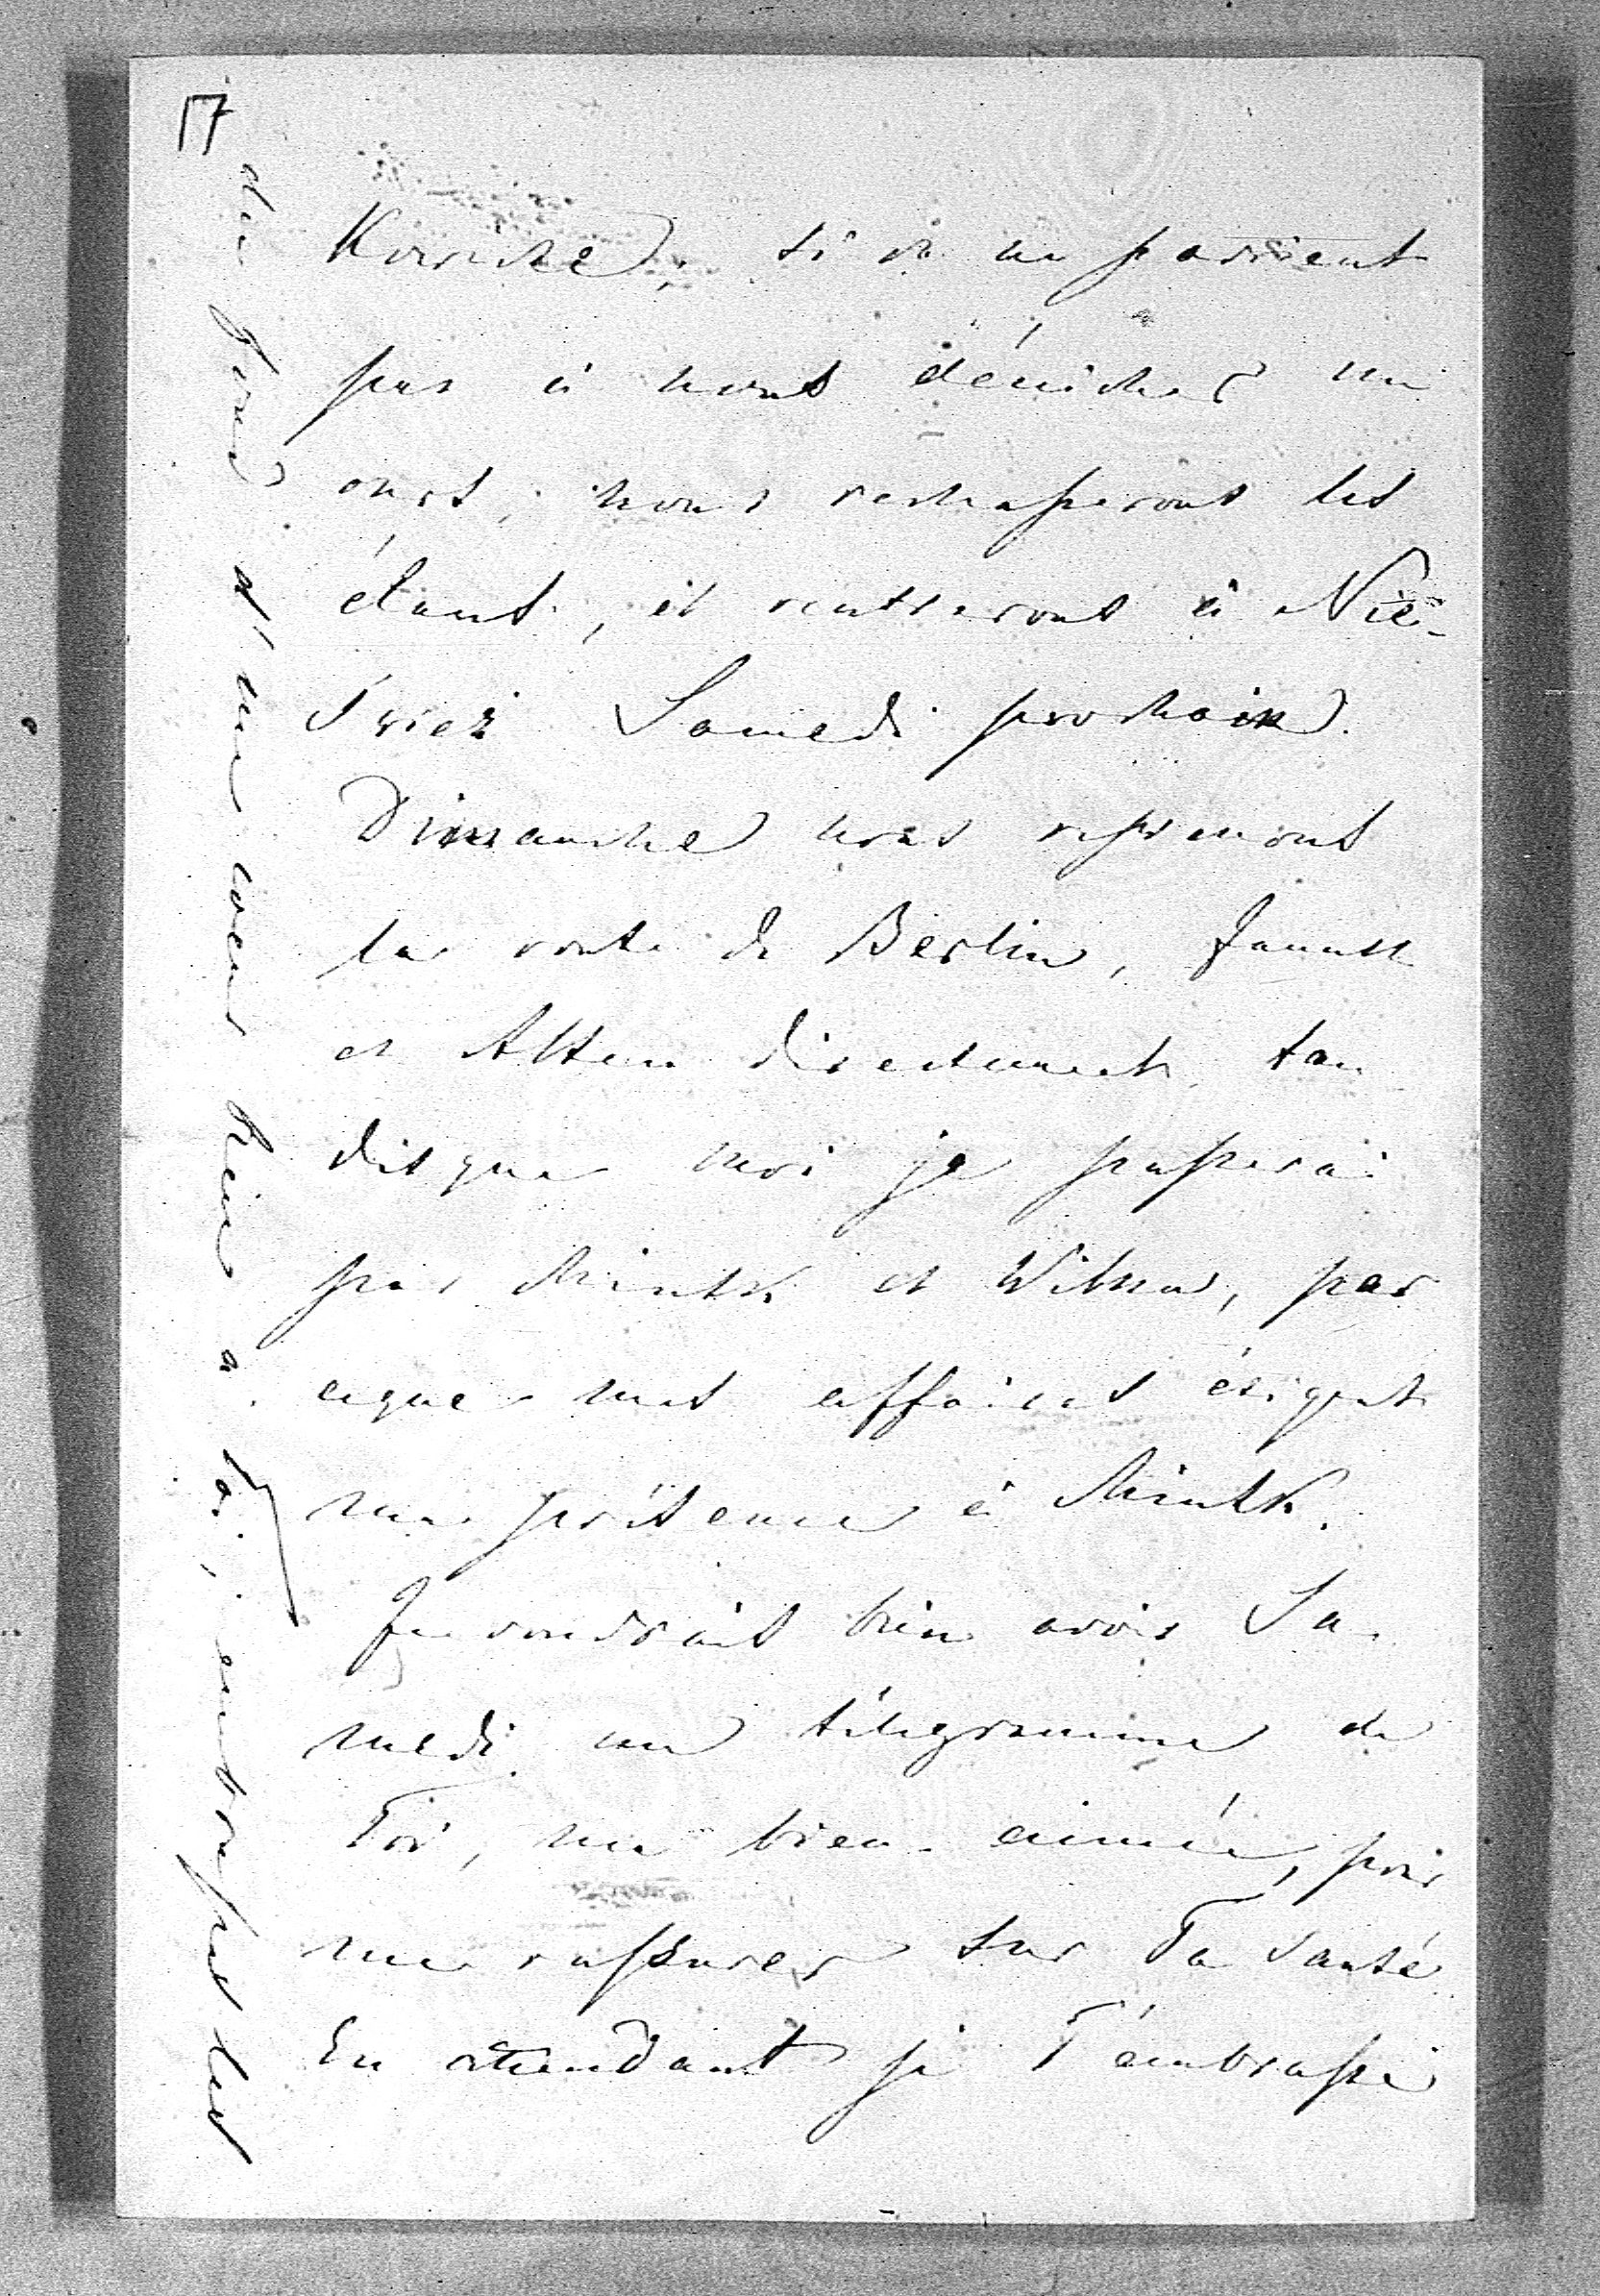 17
si on ne parvient
pas à nous dénicher un
ours, nous rechasserons les
élans, et rentrerons à Nie-
swiez Samedi prochain.
Dimanche nous reprenons
la route de Berlin,
et Alten directement, tan
disque moi je passerai
par Minsk et Wilna, par
ceque mes affaires éxigent
ma présence à Minsk.
Je voudrais bien avoir Sa-
medi un télegramme de
Toi, ma bien-aimée, pour
me rassurer sur Ta santé.
En attendant je T'embrasse
du fond d'un coeur bien à Toi, embrasse les